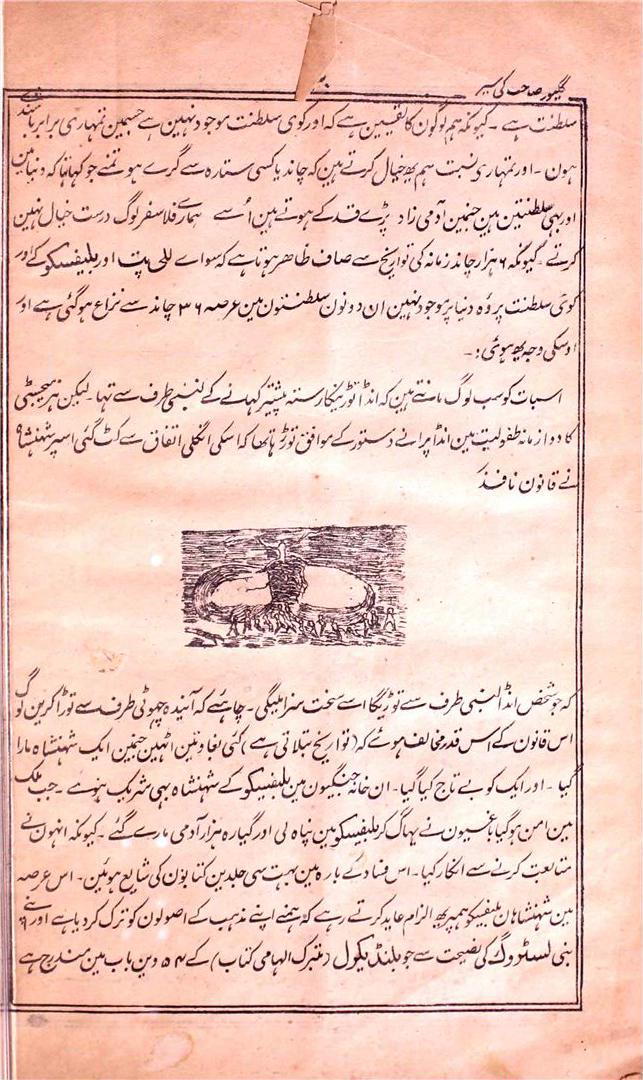 گلیور صاحب کی سیر
۲۰
سلطنت ہے ۔ کیونکہ ہم لوگون کا یقین ہے کہ اور کوئی سلطنت موجود نہین ہے جسمین تمہاری برابر باشندے
ہون ۔ اور تمہاری نسبت ہم یہہ خیال کرتے ہین کہ چاند یا کسی ستارہ سے گرے ہو تمنے جو کہا تہا کہ دنیا مین
اور بہی سلطنتین ہین جنمین آدمی زاد بڑے قد کے ہوتے ہین اُسے ہمارے فلاسفر لوگ درست خیال نہین
کرتے ۔ کیونکہ ۶ ہزار چاند زمانہ کی تواریخ سے صاف ظاہر ہوتا ہے کہ سواے للی پت اور بلیفسکو کے اور
کوئی سلطنت پردہ دنیا پر موجود نہین ان دونون سلطنتون مین عرصہ ۳۶ چاند سے نزاع ہو گئی ہے اور
اوسکی وجہ یہہ ہوئی :۔
اسبات کو سب لوگ مانتے ہین کہ انڈا توڑنیکا رستہ پیشتر کہانے کے لنبی طرف سے تہا ۔ لیکن ہز میجسٹی
کا دادا زمانہ طفولیت مین انڈا پرانے دستور کے موافق توڑ رہا تہا کہ اسکی انگلی اتفاق سے کٹ گئی اسپر شہنشاہ
نے قانون نافذ کیا
کہ جو شخص انڈا لنبی طرف سے توڑیگا اسے سخت سزا ملیگی ۔ چاہئے کہ آیندہ چھوٹی طرف سے توڑا کرین لوگ
اس قانون کے اس قدر مخالف ہوئے کہ (تواریخ بتلاتی ہے) کئی بغاوتین اٹہین جنمین ایک شہنشاہ مارا
گیا ۔ اور ایک کو بے تاج کیا گیا ۔ ان خانہ جنگیون مین بلیفسکو کے شہنشاہ بہی شریک ہوئے ۔ جب ملک
مین امن ہو گیا باغیون نے بہاگ کر بلیفسکو مین پناہ لی اور گیارہ ہزار آدمی مارے گئے ۔ کیونکہ انہون نے
متابعت کرنے سے انکار کیا ۔ اس فساد کے بارہ مین بہت سی جلدین کتابون کی شایع ہوئین ۔ اس عرصہ
مین شہنشاہان بلیفسکو ہمپر یہہ الزام عاید کرتے رہے کہ ہمنے اپنے مذہب کے اصولون کو ترک کر دیا ہے اور اپنے
نبی لسٹروگ کی نصیحت سے جو بلنڈیکول (متبرک الہامی کتاب) کے ۵۴ وین باب مین مندرج ہے